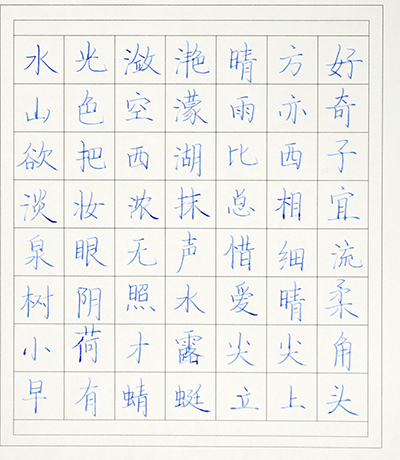 水光潋滟晴方好
山色空濛雨亦奇
欲把西湖比西子
淡妆浓抹总相宜
泉眼无声惜细流
树阴照水爱晴柔
小荷才露尖尖角
早有蜻蜓立上头